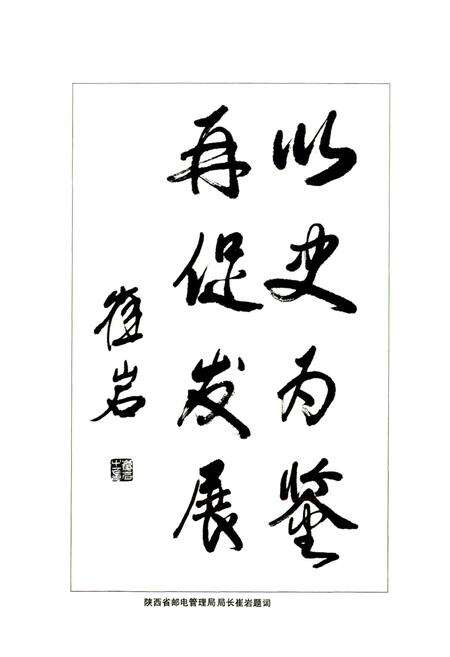 以史为鉴
再促发展
崔岩
陕西省邮电管理局局长崔岩题词